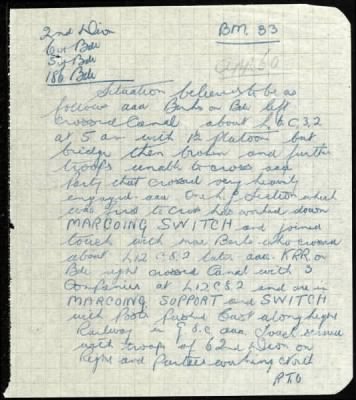 2nd Divn
BM. 33
6th Bde
5th Bde
186 Bde
Situation believed to be as
follows aaa Berks on Bde left
crossed Canal about L.6.C.3.2
at 5 am with 1½ platoons but
bridge then broken and further
troops unable to cross aaa
Party that crossed very heavily
engaged aaa One Section which
was first to cross has worked down
MARCOING SWITCH and joined
touch with more Berks who crossed
about L12 C8.2 later aaa KRR on
Bde right crossed Canal with 3
Companies at L12 C8.2 and are in
MARCOING SUPPORT and SWITCH
with Posts pushed East along
Railway in G.8.c aaa
with troops of 62nd Divn on
Right and Parties working North
PTO